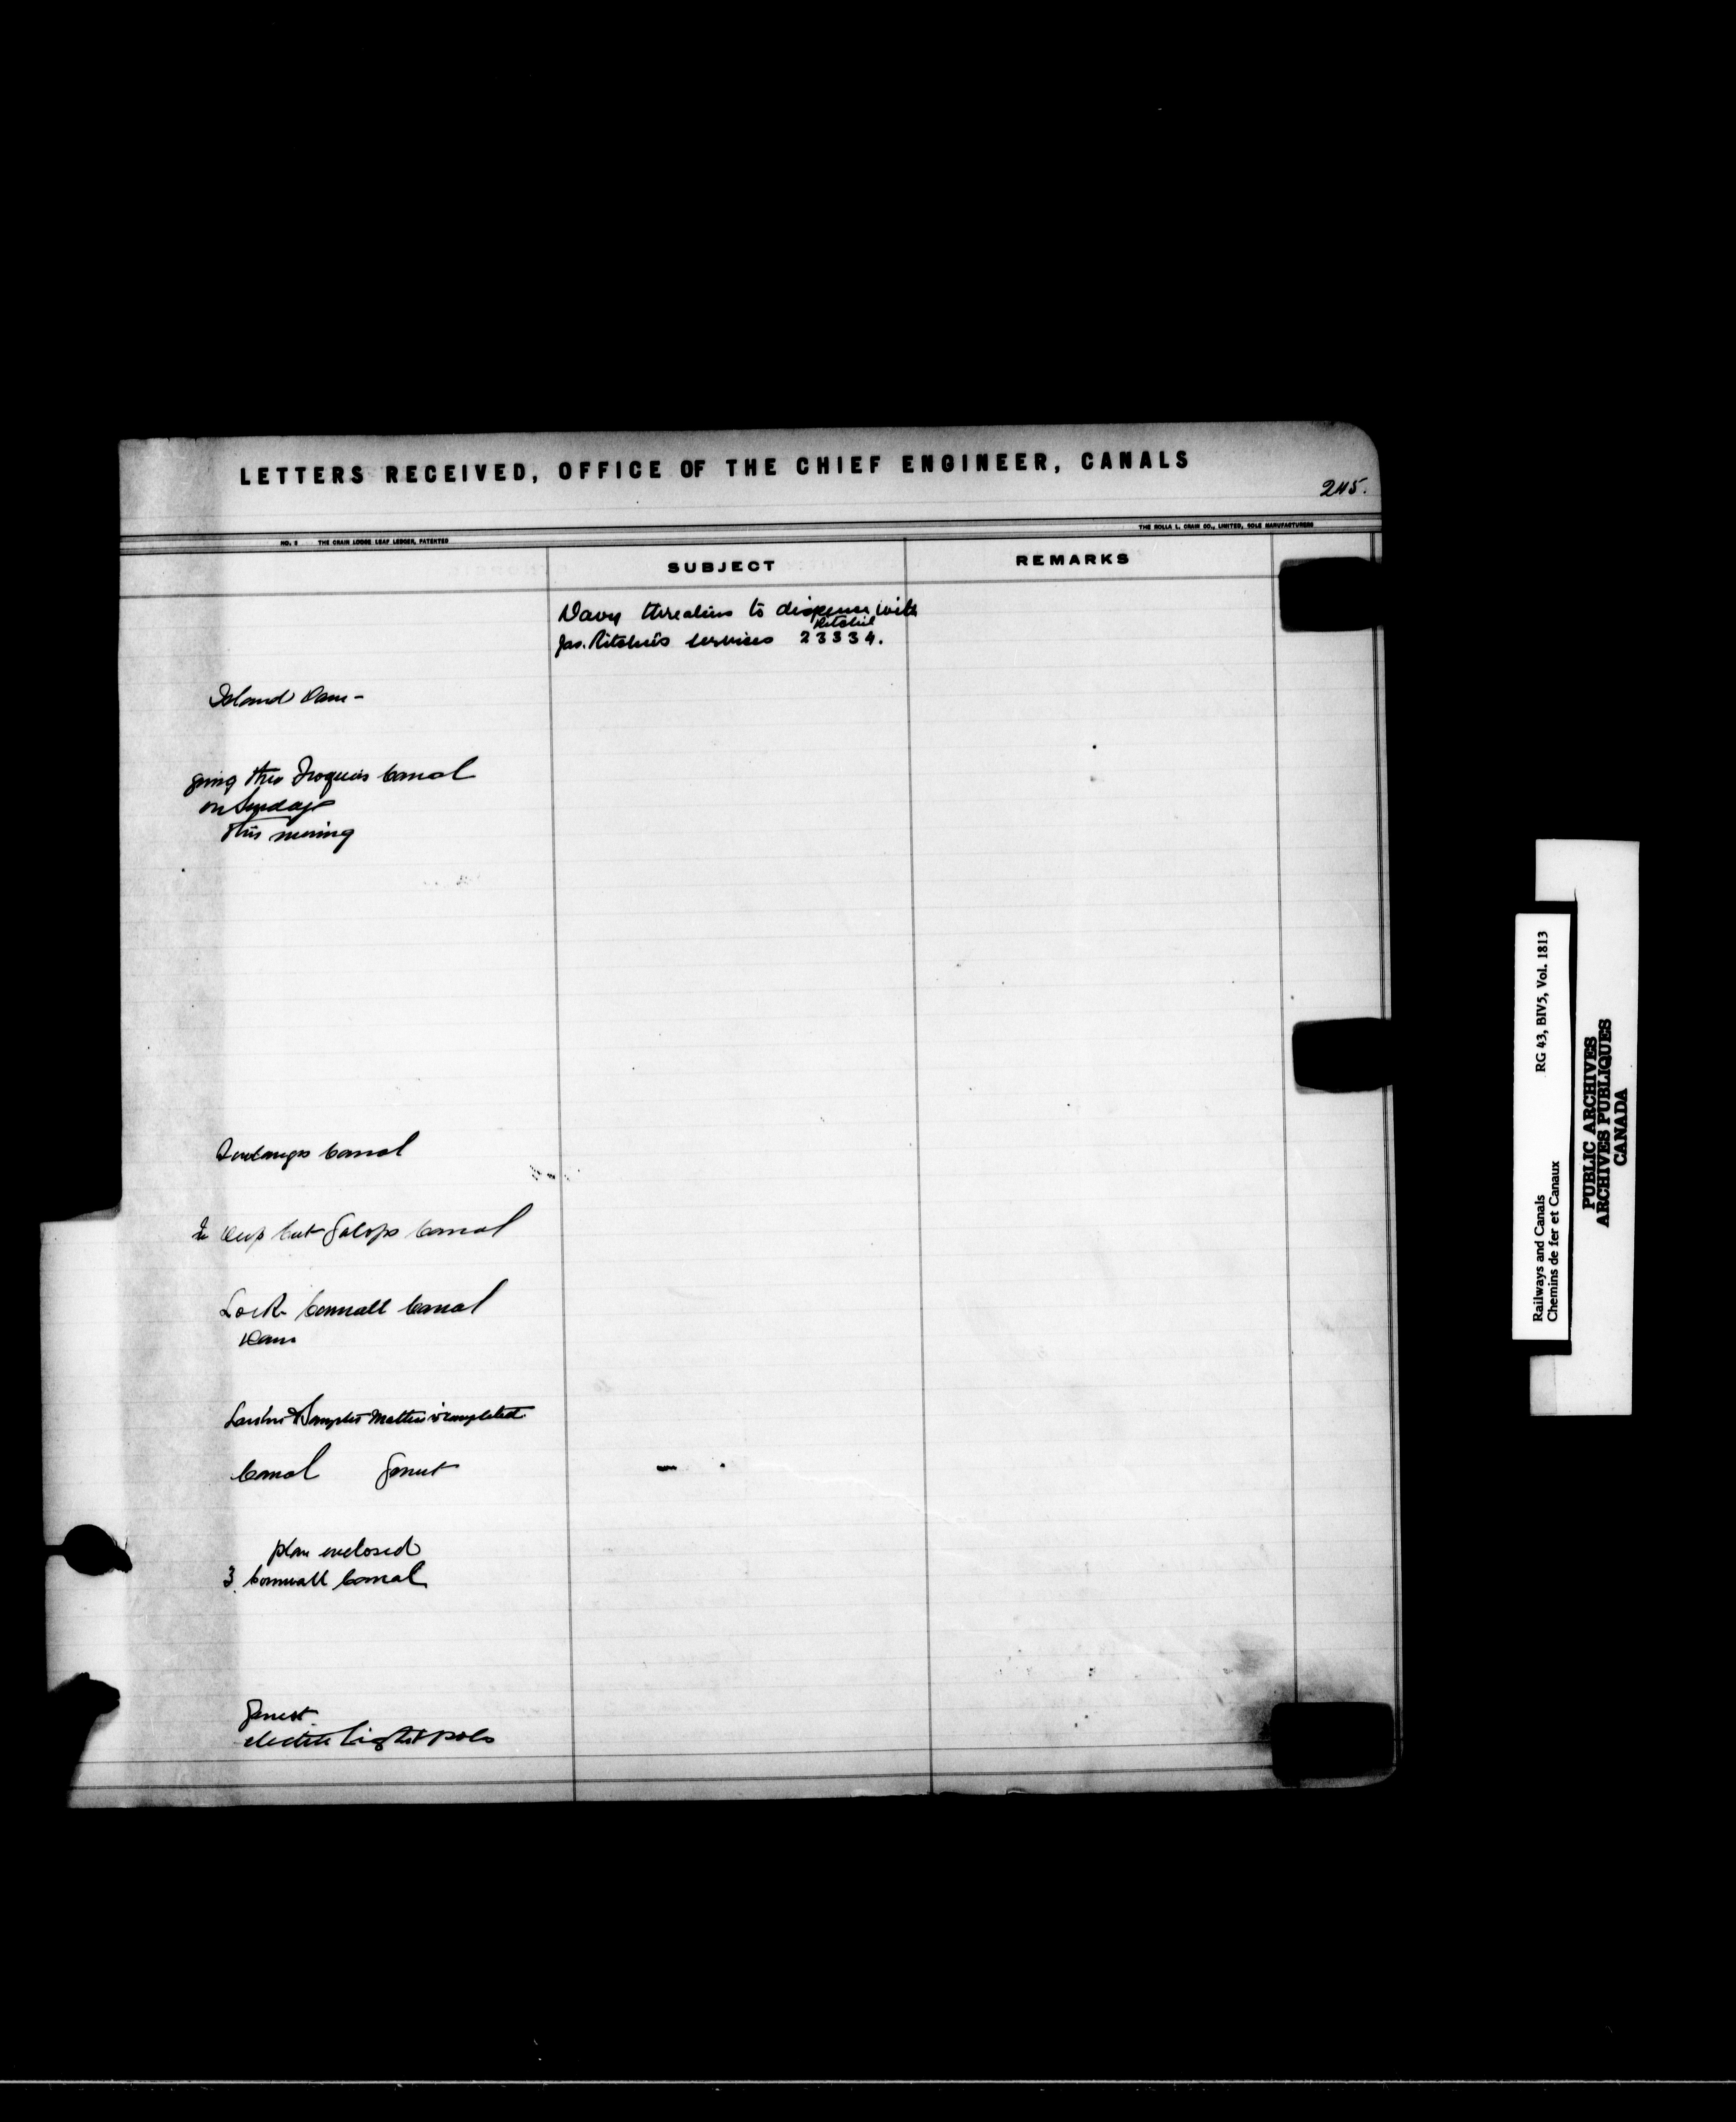 LETTERS RECEIVED, OFFICE OF THE CHIEF ENGINEER, CANALS
245.
NO. 2 THE CRAIN LOOSE LEAF LEDGER, PATENTED
THE ROLLA L. CRAIN CO., LIMITED, SOLE MANUFACTURERS
SUBJECT
REMARKS
Davy threatens to dispense with
Ritchie
Jas. Ritchie's services 23334.
Island Dam -
going thro Iroquois Canal
on Sunday
this morning
Canal
In deep cut Galops Canal
Lock Cornwall Canal
Dam
completed.
Canal
plan enclosed
3. Cornwall Canal
electric light poles
Railways and Canals RG 43, BIV5, Vol. 1813
Chemins de fer et Canaux
PUBLIC ARCHIVES
ARCHIVES PUBLIQUES
CANADA